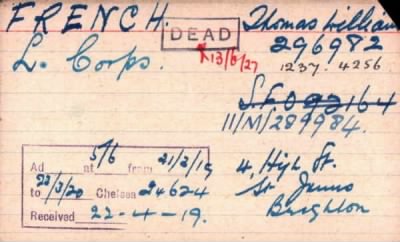 FRENCH. Thomas William
DEAD 296982
13/6/27
L. Corps. 1237. 4256
S.E.092164
11/M/289984.
Ad 5/6 at from 21/3/19
to 23/3/20 Chelsea 24624
Received 22-4-19.
4, High St.
St. James
Brighton